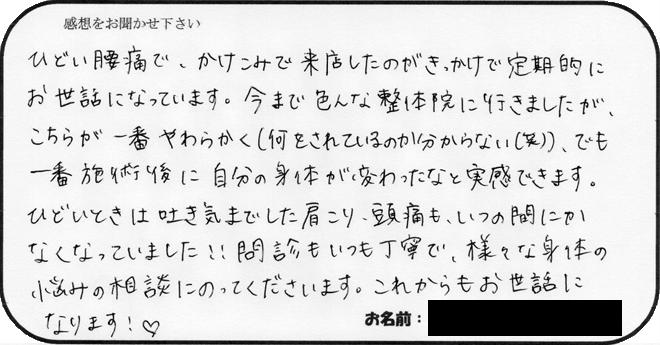 感想をお聞かせ下さい
ひどい腰痛で、かけこみで来店したのがきっかけで定期的に
お世話になっています。今まで色んな整体院に行きましたが、
こちらが一番やわらかく(何をされているのか分からない(笑))、でも
一番施術後に自分の身体が変わったなと実感できます。
ひどいときは吐き気までした肩こり、頭痛も、いつの間にか
なくなっていました!!問診もいつも丁寧で、様々な身体の
悩みの相談にのってくださいます。これからもお世話に
なります!♡
お名前: